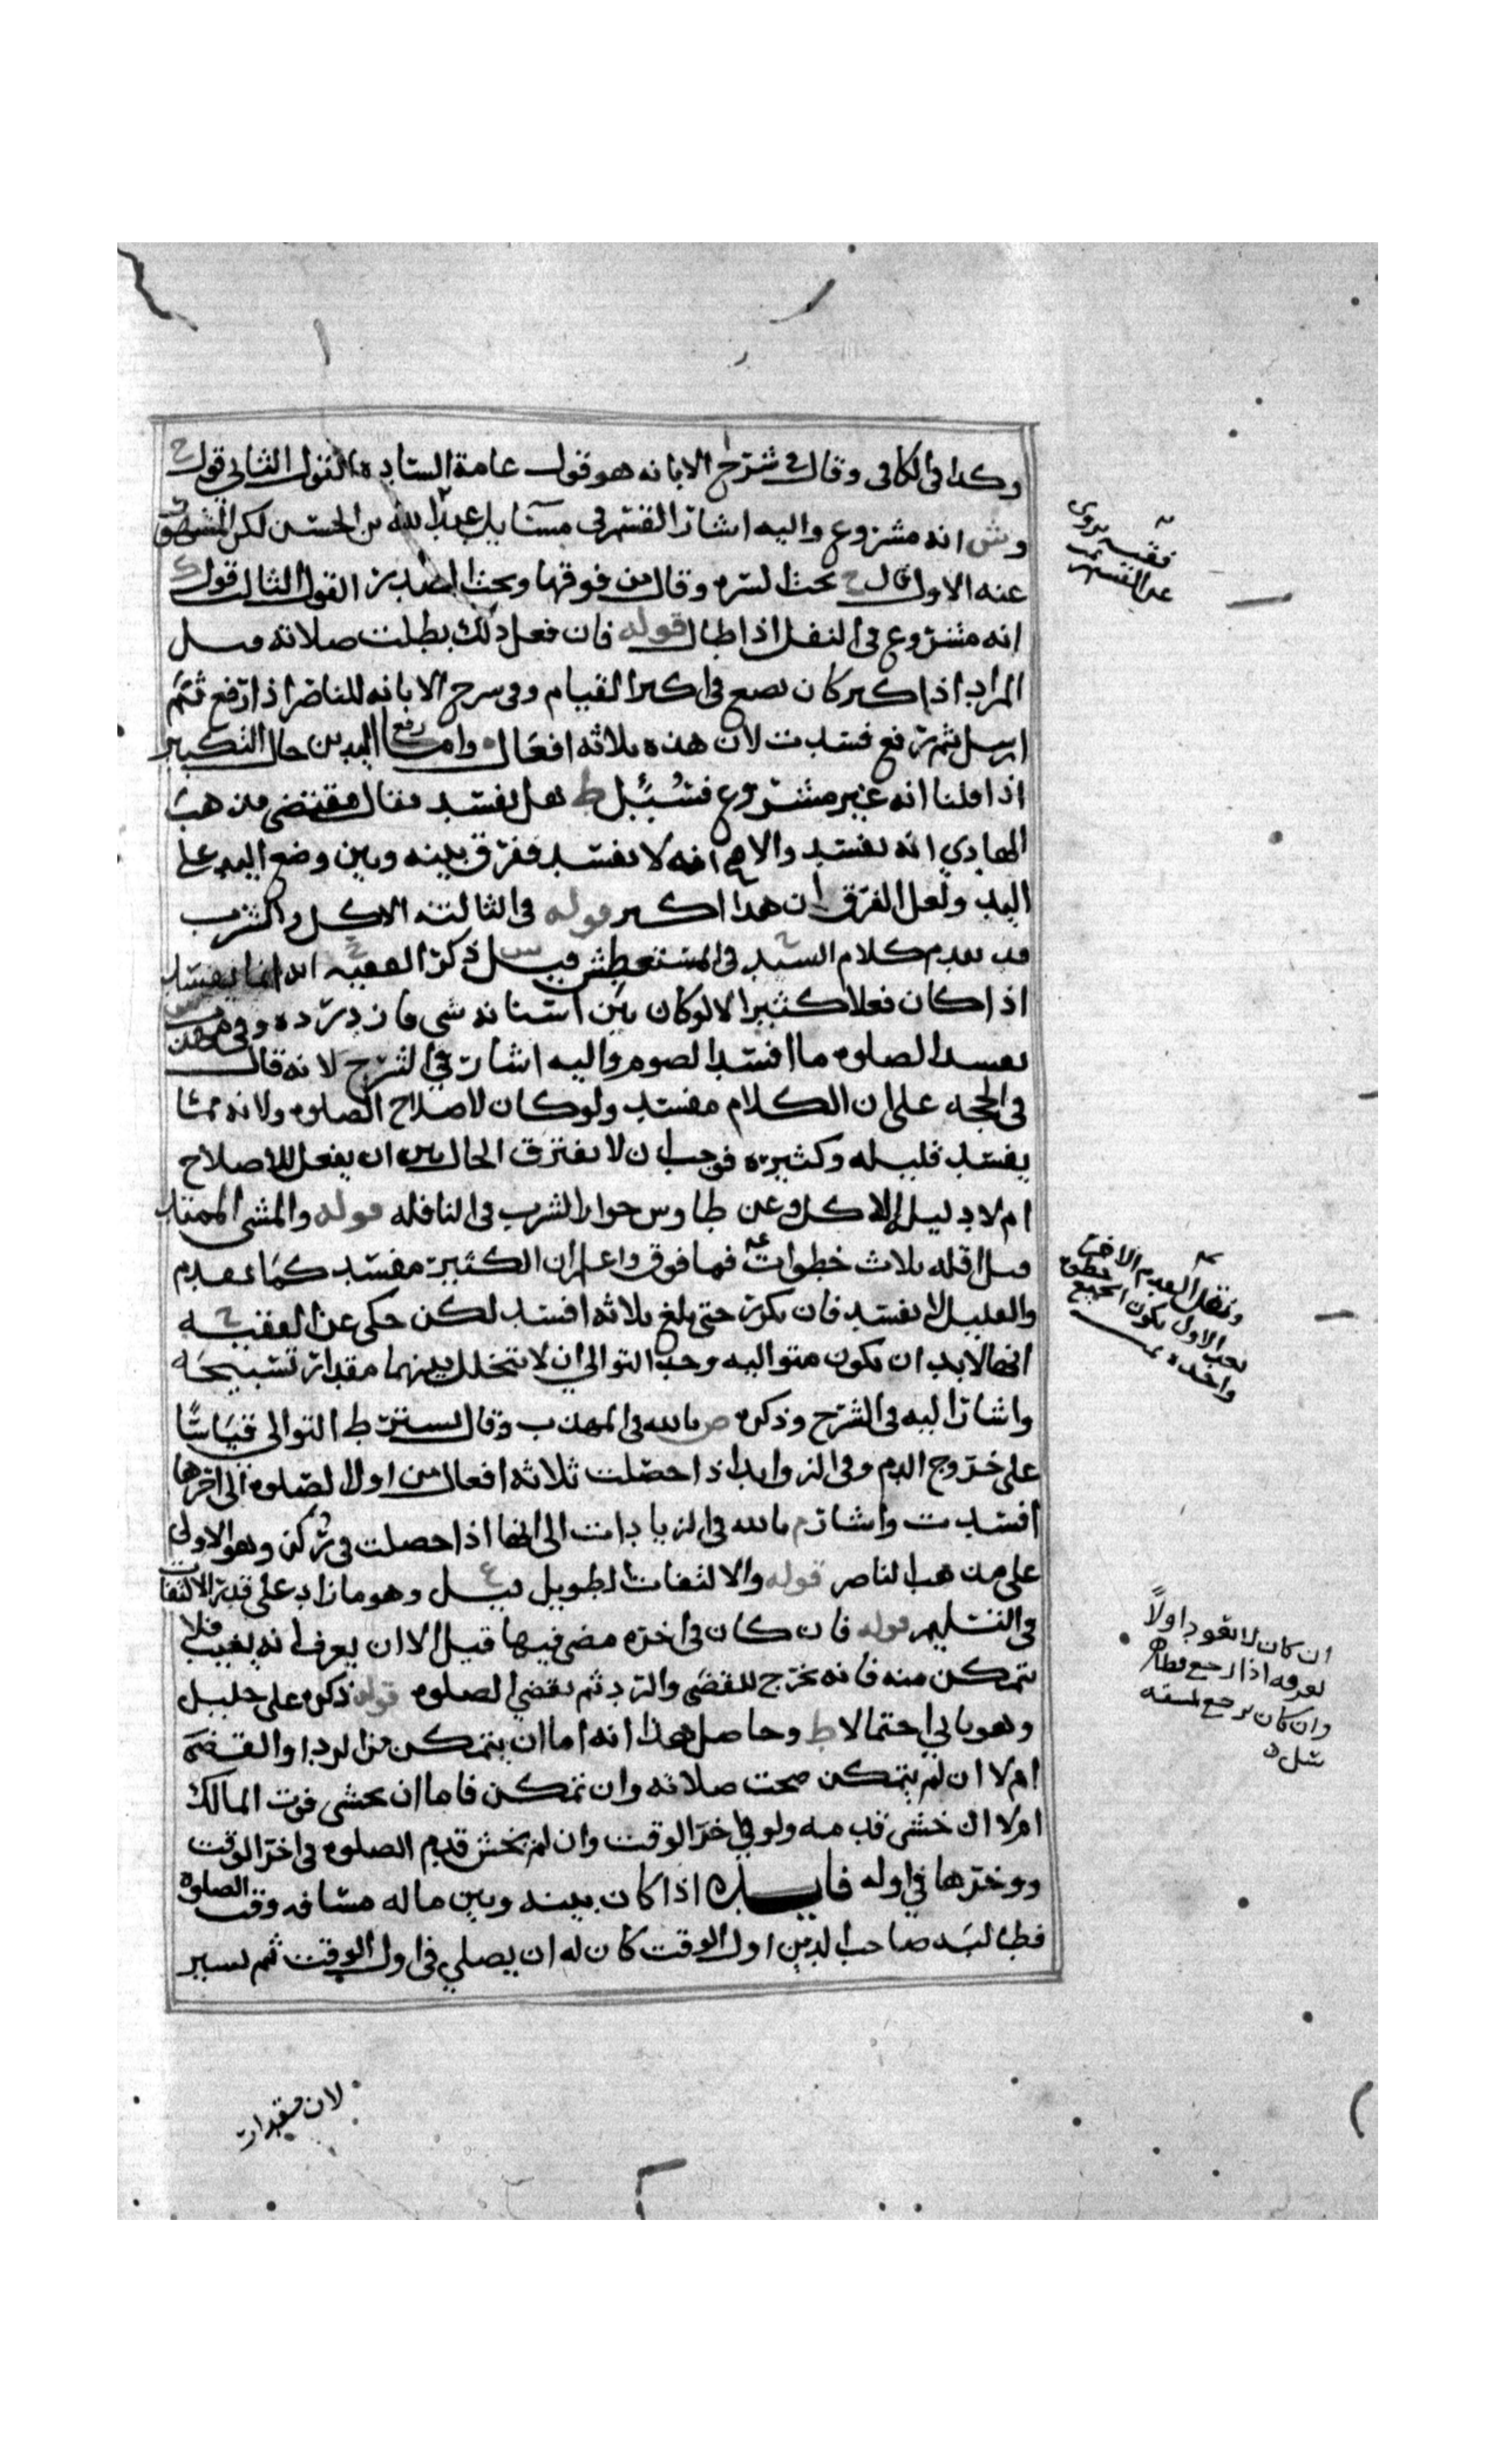 وكذا في الكافي وقال في شرح الابانه هو قول عامة الساده القول الثاني قول ح
وش انه مشروع واليه اشار القسم في مسايل عبد الله بن الحسن لكن المشهور
عنه الاول قال ح تحت السره وقال من فوقها وتحت الصدر القول الثالث قول ك
انه مشروع في النفل اذا طال قوله فان فعل ذلك بطلت صلاته قيل
المراد اذا كبر كان يضع في اكثر القيام وفي شرح الابانه للناصر اذا رفع ثم
ارسل ثم رفع فسدت لان هذه ثلاثه افعال واما رفع اليدين حال التكبير
اذا قلنا انه غير مشروع فسُئِل ط هل يفسد فقال مقتضى مذهب
الهادي انه يفسد والاصح انه لا يفسد ففرق بينه وبين وضع اليد على
اليد ولعل الفرق ان هذا اكثر قوله في الثالثه الاكل والشرب
قد تقدم كلام السيد ح في المستعطش قيل س ذكر الفقيه ح انه انما يفسد
اذا كان فعلا كثيرا لا لو كان بين اسنانه شي فازدرده وفي
يفسد الصلوه ما افسد الصوم واليه اشار في الشرح لانه قال
في الحجه على ان الكلام مفسد ولو كان لاصلاح الصلوه ولانه مما
يفسد قليله وكثيره فوجب ان لا يفترق الحال بين ان يفعل للاصلاح
ام لا دليل الاكل وعن طاوس جواز الشرب في النافله قوله والمشي الممتد
قيل اقله ثلاث خطوات فما فوق واعلم ان الكثير مفسد كما تقدم
والقليل لا يفسد فان كرر حتى بلغ ثلاثه افسد لكن حكى عن الفقيه ح
انها لا بد ان يكون متواليه وحد التوالي ان لا يتخلل بينهما مقدار تسبيحه
واشار اليه في الشرح وذكره ص بالله في المهذب وقال يشترط التوالي قياسًا
على خروج الدم وفي الزوايد اذا حصلت ثلاثه افعال من اول الصلوه الى اخرها
افسدت واشار م بالله في الزيادات الى انها اذا حصلت في رُكن وهو الاولى
على مذهب الناصر قوله والالتفات الطويل قيل ع وهو ما زاد على قدر الالتفات
في التسليم قوله فان كان في اخره مضى فيها قيل الا ان يعرف انه يغيب فلا
يتمكن منه فانه يخرج للقضى والرد ثم يقضي الصلوه قوله ذكره علي خليل
وهو ثاني احتمالا ط وحاصل هذا انه اما ان يتمكن من الرد او القضى
ام لا ان لم يتمكن صحت صلاته وان تمكن فاما ان يخشى فوت المالك
ام لا ان خشي قدمه ولو في اخر الوقت وان لم يخش قدم الصلوه في اخر الوقت
ووخرها في اوله فايده اذا كان بينه وبين ماله مسافه وقت الصلوه
فطالبه صاحب الدين اول الوقت كان له ان يصلي في اول الوقت ثم يسير
لان مقدار
ونقل القدم الاخرى
بجنب الاول يكون الجميع خطوة
واحده
ان كان لا يعود اولاً
يعرفه اذا رجع
وان كان يرجع